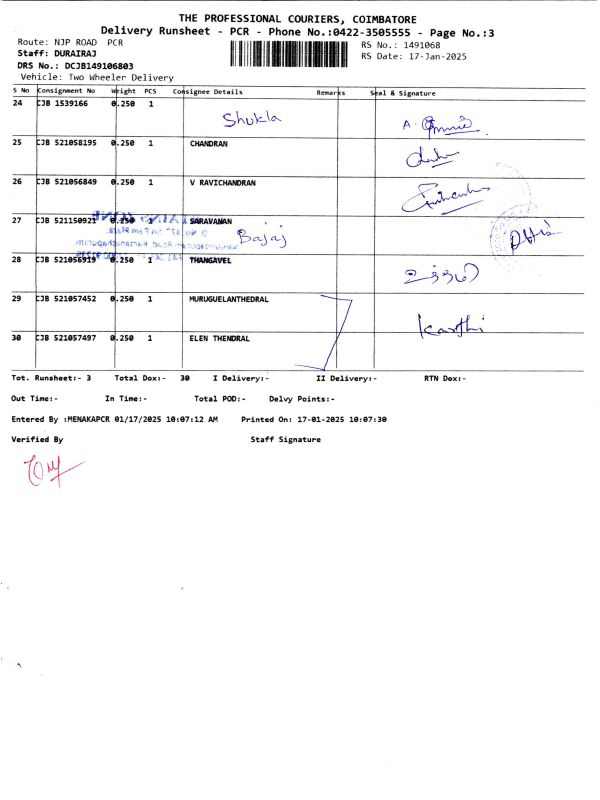 THE PROFESSIONAL COURIERS, COIMBATORE
Delivery Runsheet - PCR - Phone No.:0422-3505555 - Page No.:3
Route: NJP ROAD PCR RS No.: 1491068
Staff: DURAIRAJ RS Date: 17-Jan-2025
DRS No.: DCJB149106803
Vehicle: Two Wheeler Delivery
S No Consignment No Weight PCS Consignee Details Remarks Seal & Signature
24 CJB 1539166 0.250 1 Shukla
25 CJB 521058195 0.250 1 CHANDRAN
26 CJB 521056849 0.250 1 V RAVICHANDRAN
27 CJB 521150921 0.250 1 SARAVANAN
Bajaj
28 CJB 521056919 0.250 1 THANGAVEL
29 CJB 521057452 0.250 1 MURUGUELANTHEDRAL
Karthi
30 CJB 521057497 0.250 1 ELEN THENDRAL
Tot. Runsheet:- 3 Total Dox:- 30 I Delivery:- II Delivery:- RTN Dox:-
Out Time:- In Time:- Total POD:- Delvy Points:-
Entered By :MENAKAPCR 01/17/2025 10:07:12 AM Printed On: 17-01-2025 10:07:30
Verified By Staff Signature